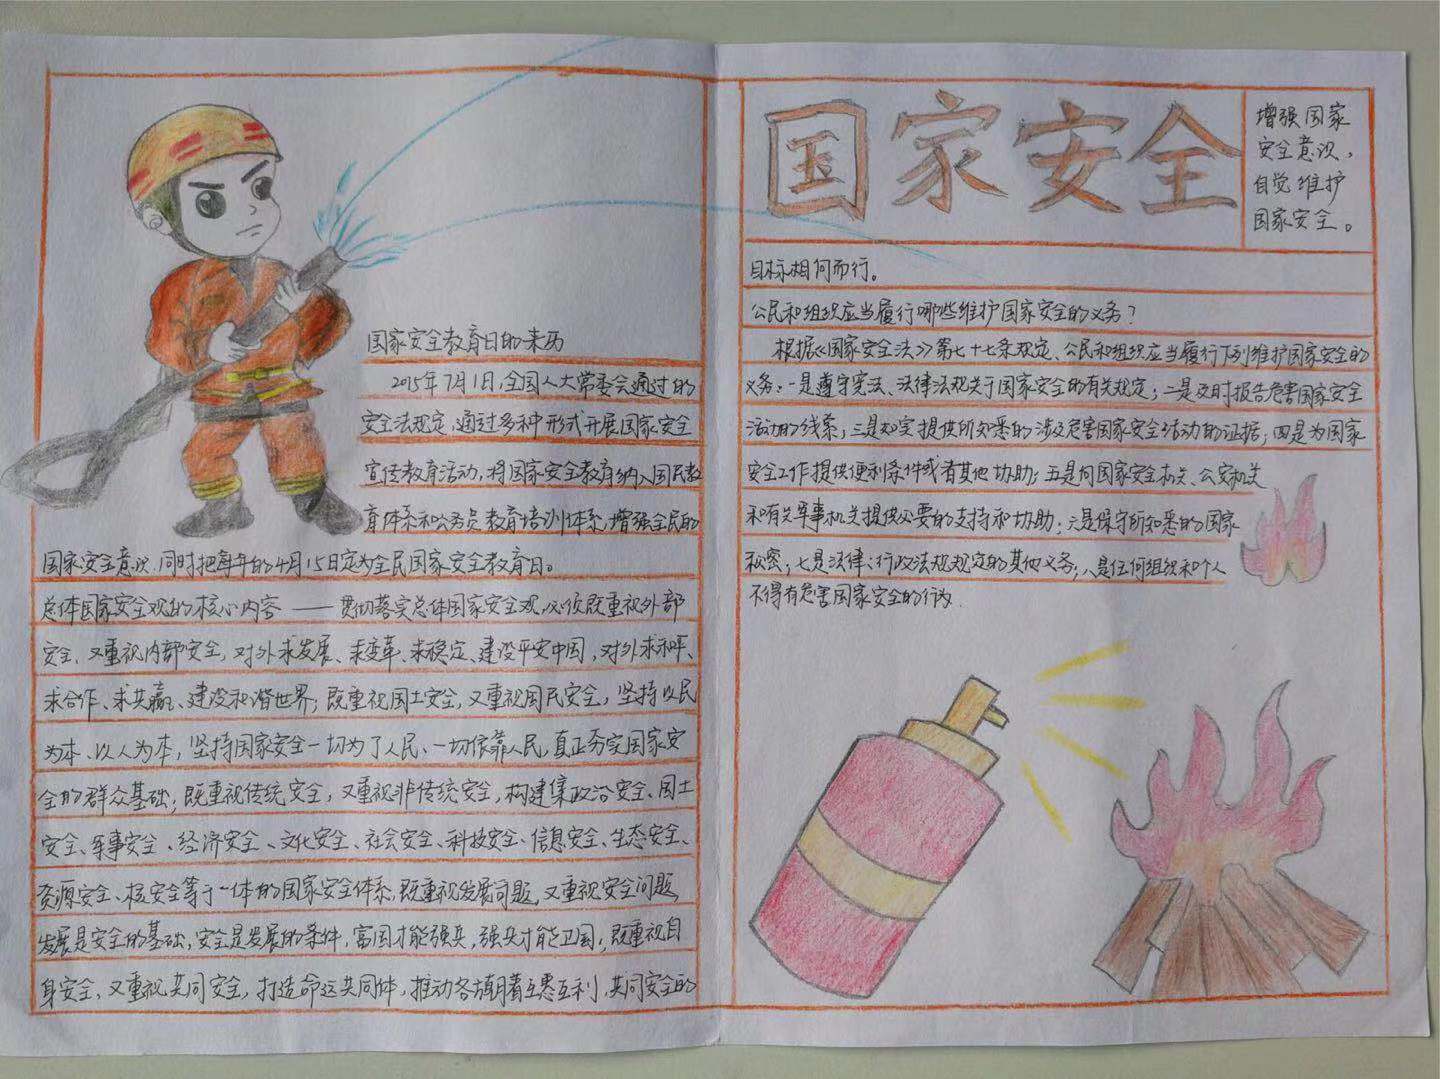 国家安全教育日的来历
2015年7月1日,全国人大常委会通过的
安全法规定,通过多种形式开展国家安全
宣传教育活动,将国家安全教育纳入国民教
育体系和公务员教育培训体系,增强全民的
国家安全意识,同时把每年的4月15日定为全民国家安全教育日。
总体国家安全观的核心内容——贯彻落实总体国家安全观,必须既重视外部
安全、又重视内部安全,对外求发展、求变革、求稳定、建设平安中国,对外求和平、
求合作、求共赢、建设和谐世界;既重视国土安全,又重视国民安全,坚持以民
为本、以人为本,坚持国家安全一切为了人民、一切依靠人民,真正夯实国家安
全的群众基础;既重视传统安全,又重视非传统安全,构建集政治安全、国土
安全、军事安全、经济安全、文化安全、社会安全、科技安全、信息安全、生态安全、
资源安全、核安全等于一体的国家安全体系;既重视发展问题,又重视安全问题,
发展是安全的基础,安全是发展的条件,富国才能强兵,强兵才能卫国;既重视自
身安全,又重视共同安全,打造命运共同体,推动各方朝着互惠互利、共同安全的
国家安全
增强国家
安全意识,
自觉维护
国家安全。
目标相向而行。
公民和组织应当履行哪些维护国家安全的义务?
根据《国家安全法》第七十七条规定、公民和组织应当履行下列维护国家安全的
义务:一是遵守宪法、法律法规关于国家安全的有关规定;二是及时报告危害国家安全
活动的线索;三是如实提供所知悉的涉及危害国家安全活动的证据;四是为国家
安全工作提供便利条件或有其他协助;五是向国家安全机关、公安机关
和有关军事机关提供必要的支持和协助;六是保守所知悉的国家
秘密;七是法律;行政法规规定的其他义务;八是任何组织和个人
不得有危害国家安全的行为.